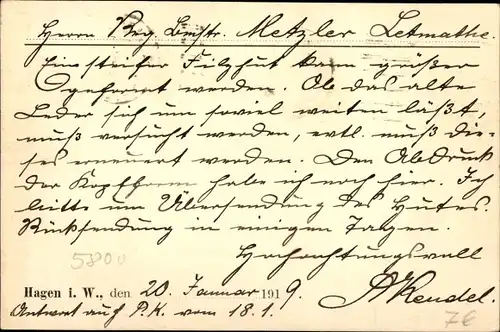 Herrn Reg. Bmstr. Metzler Letmathe.
Ein steifer Filzhut kann größer
geformt werden. Ob das alte
Leder sich um soviel weiten läßt,
muß versucht werden, evtl. muß die-
ses erneuert werden. Den Abdruck
der Kopfform habe ich noch hier. Ich
bitte um Übersendung des Hutes.
Rücksendung in einigen Tagen.
Hochachtungsvoll
5800
Hagen i. W., den 20. Januar 1919.
A Kendel.
Antwort auf P.K. vom 18.1.
7€